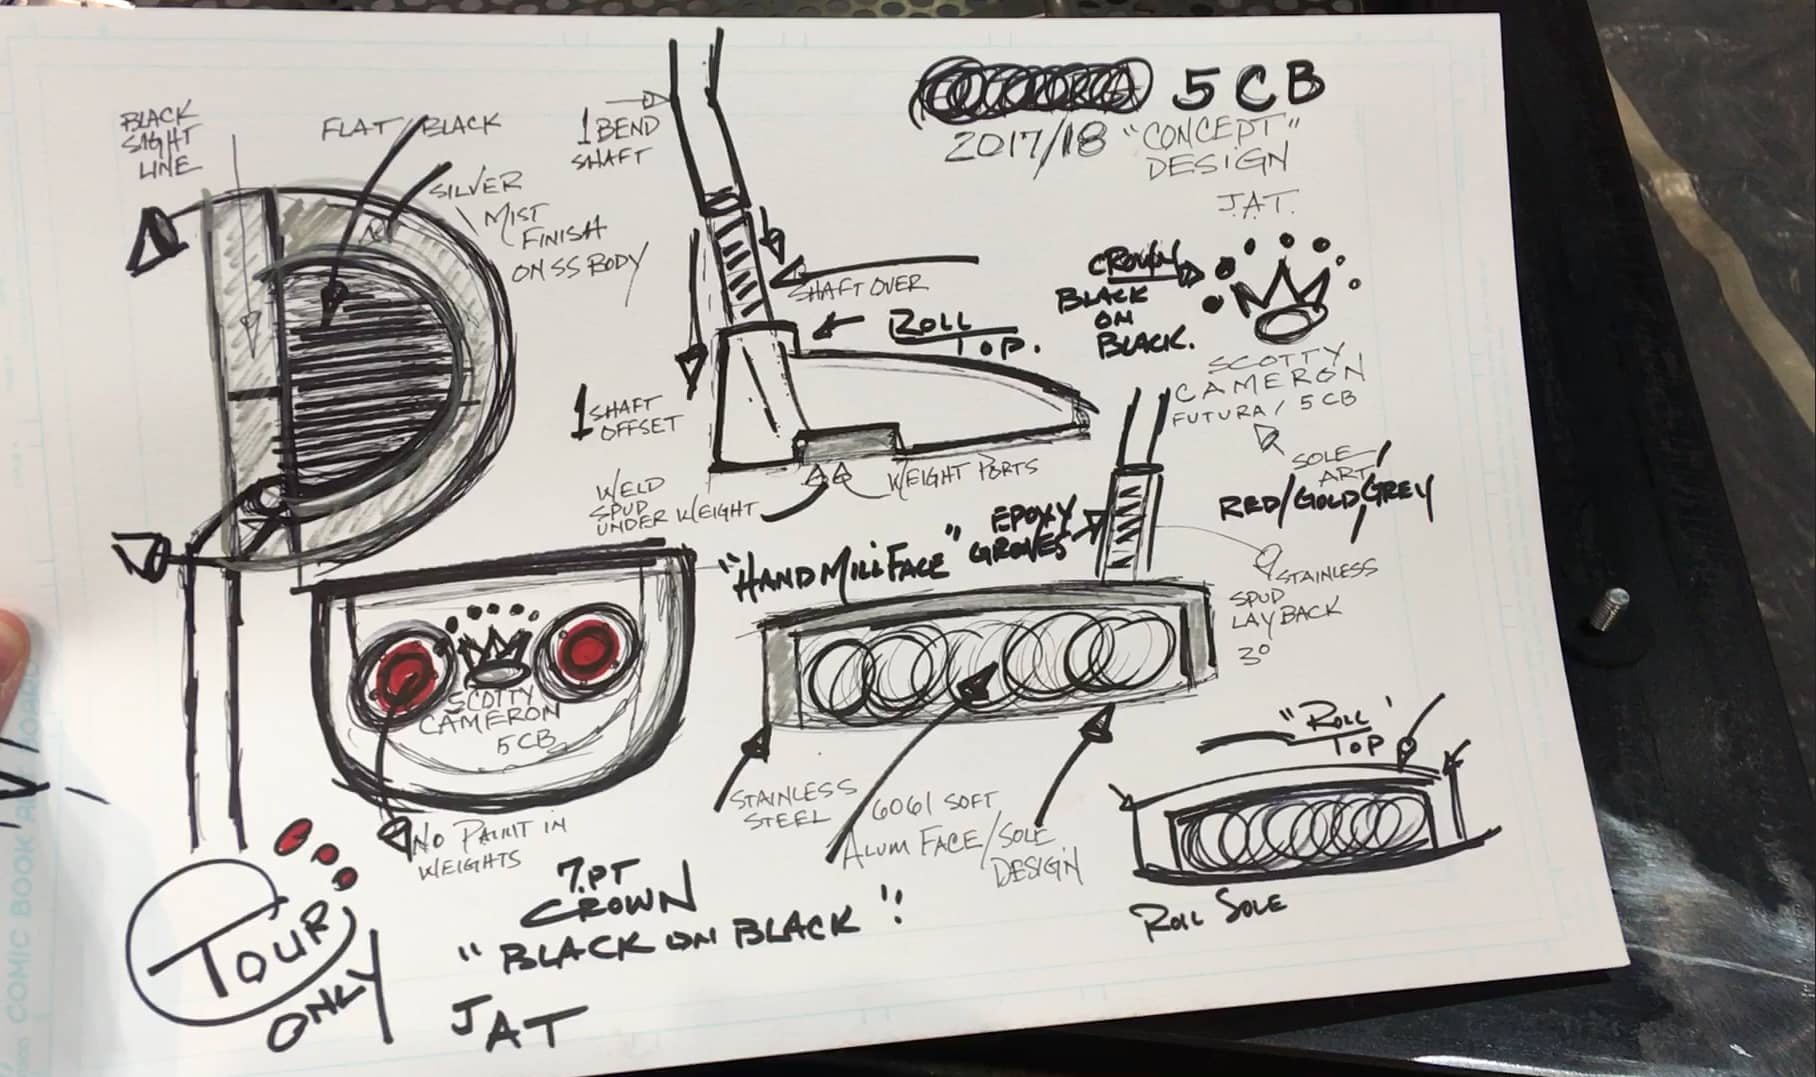 5CB
2017/18 "CONCEPT"
DESIGN
J.A.T.
BLACK
SIGHT
LINE
FLAT/BLACK
SILVER
MIST
FINISH
ON SS BODY
1 BEND
SHAFT
SHAFT OVER
ROLL
TOP.
1 SHAFT
OFFSET
WELD
SPUD
UNDER WEIGHT
WEIGHT PORTS
CROWN
BLACK
ON
BLACK.
SCOTTY
CAMERON
FUTURA / 5CB
SOLE
ART/
RED/GOLD/GREY
"HAND MILL FACE"
EPOXY
GROVES
STAINLESS
SPUD
LAYBACK
3°
SCOTTY
CAMERON
5CB
NO PAINT IN
WEIGHTS
STAINLESS
STEEL
6061 SOFT
ALUM FACE/SOLE
DESIGN
"ROLL"
TOP
ROLL SOLE
TOUR
ONLY
7.PT
CROWN
"BLACK ON BLACK"!
JAT
COMIC BOOK